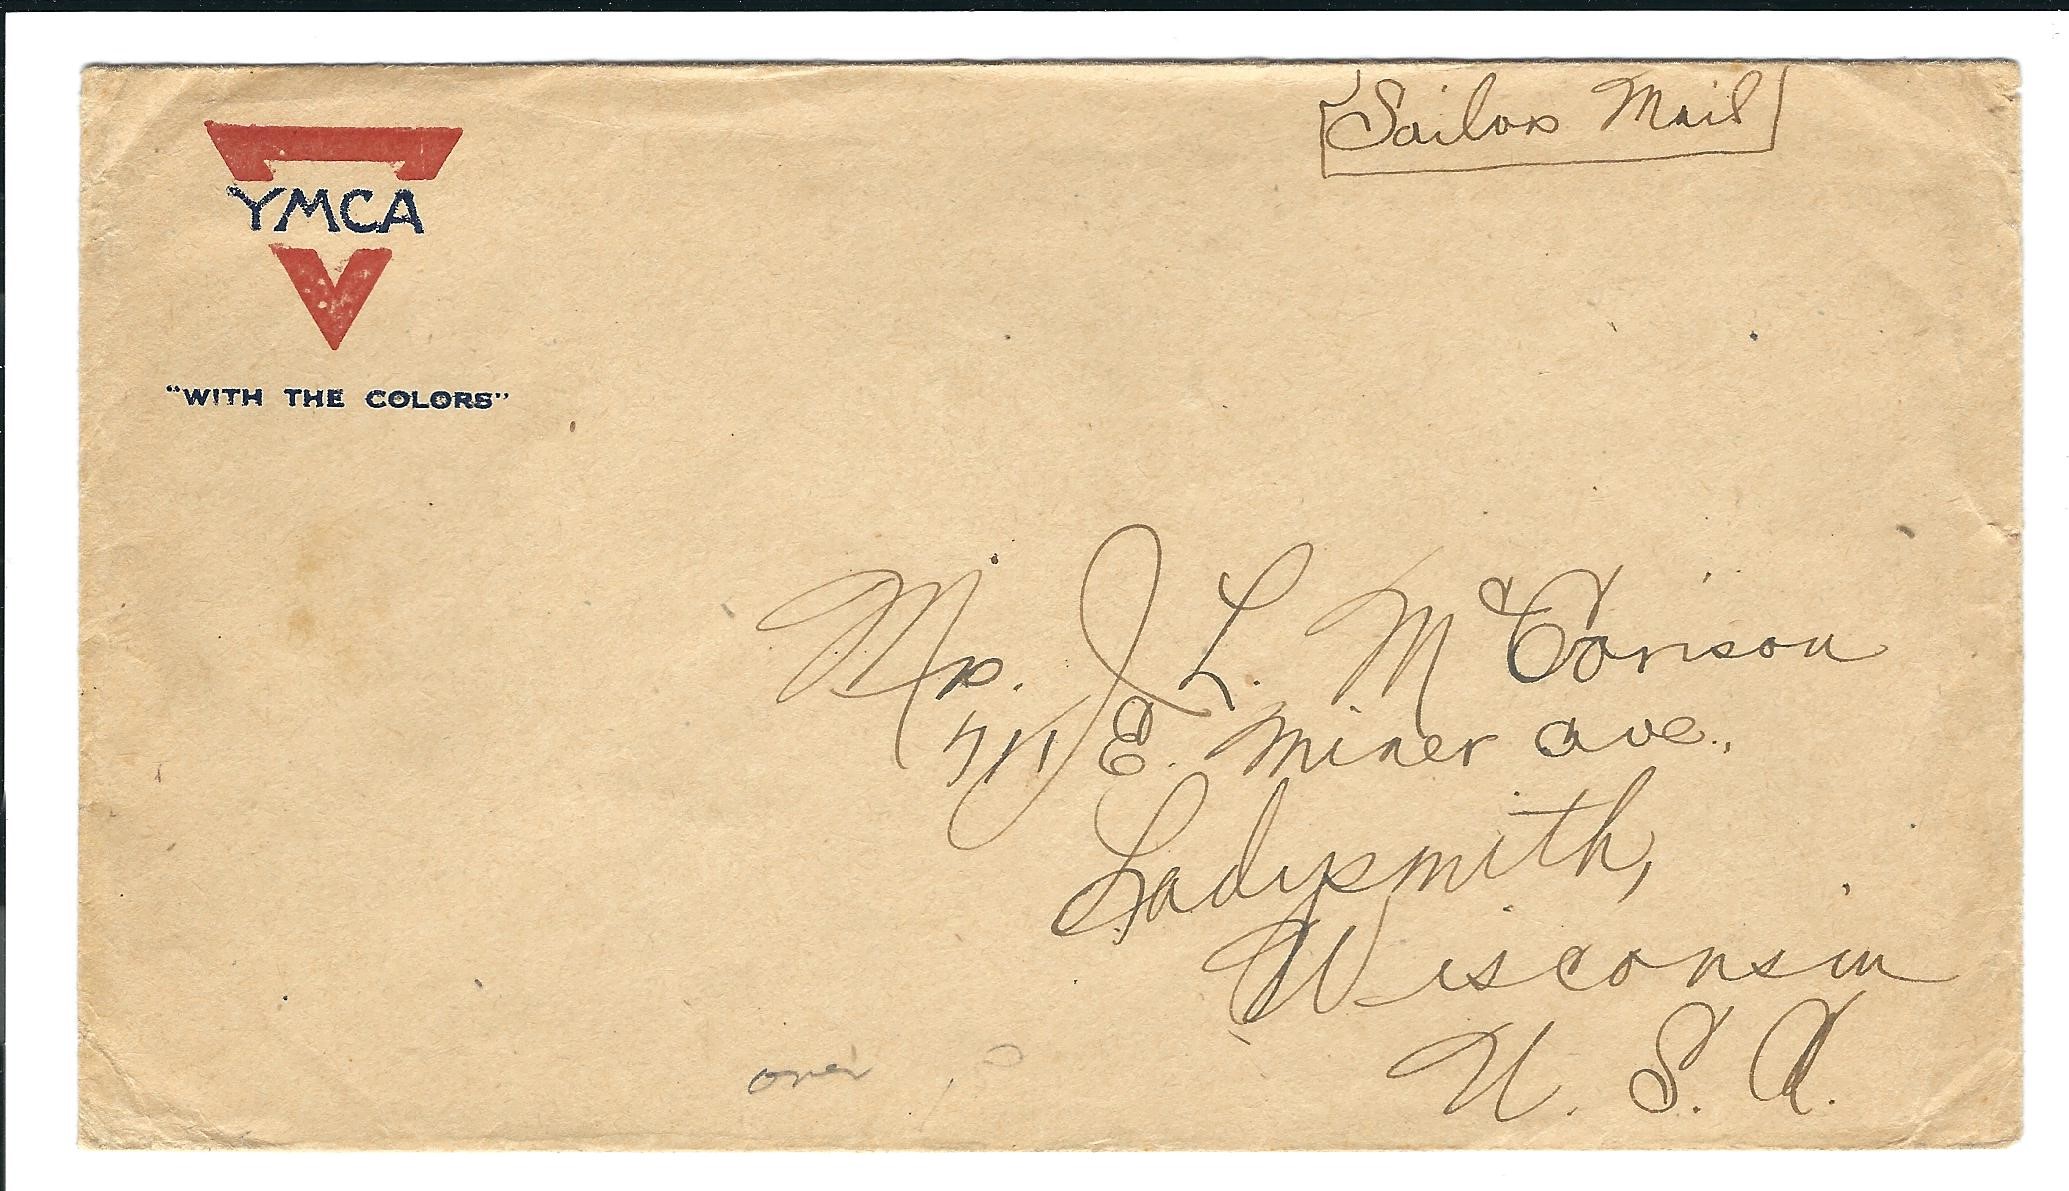 Sailors Mail
YMCA
"WITH THE COLORS"
Mrs. J L. McCorison
711 E. Miner ave.,
Ladysmith,
Wisconsin
U. S. A.
over